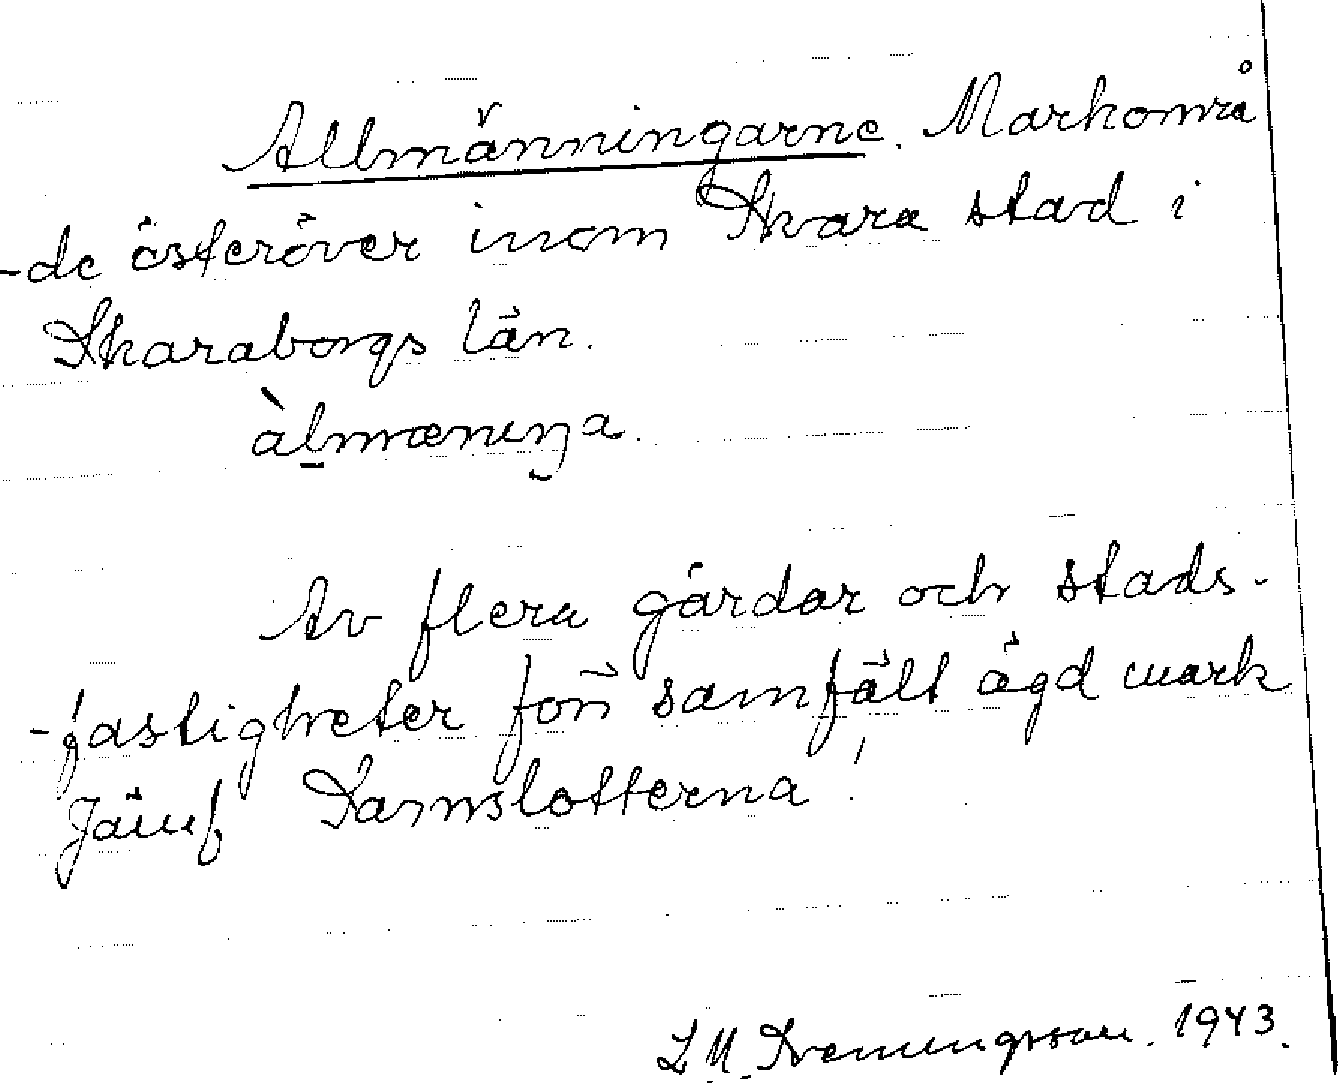 Allmänningarne. Markområ
-de österöver inom Skara stad i
Skaraborgs län.
àlmæniŋa.
Av flera gårdar och stads-
-fastigheter förr samfällt ägd mark
Jämf Damslotterna!
L M. 1943.